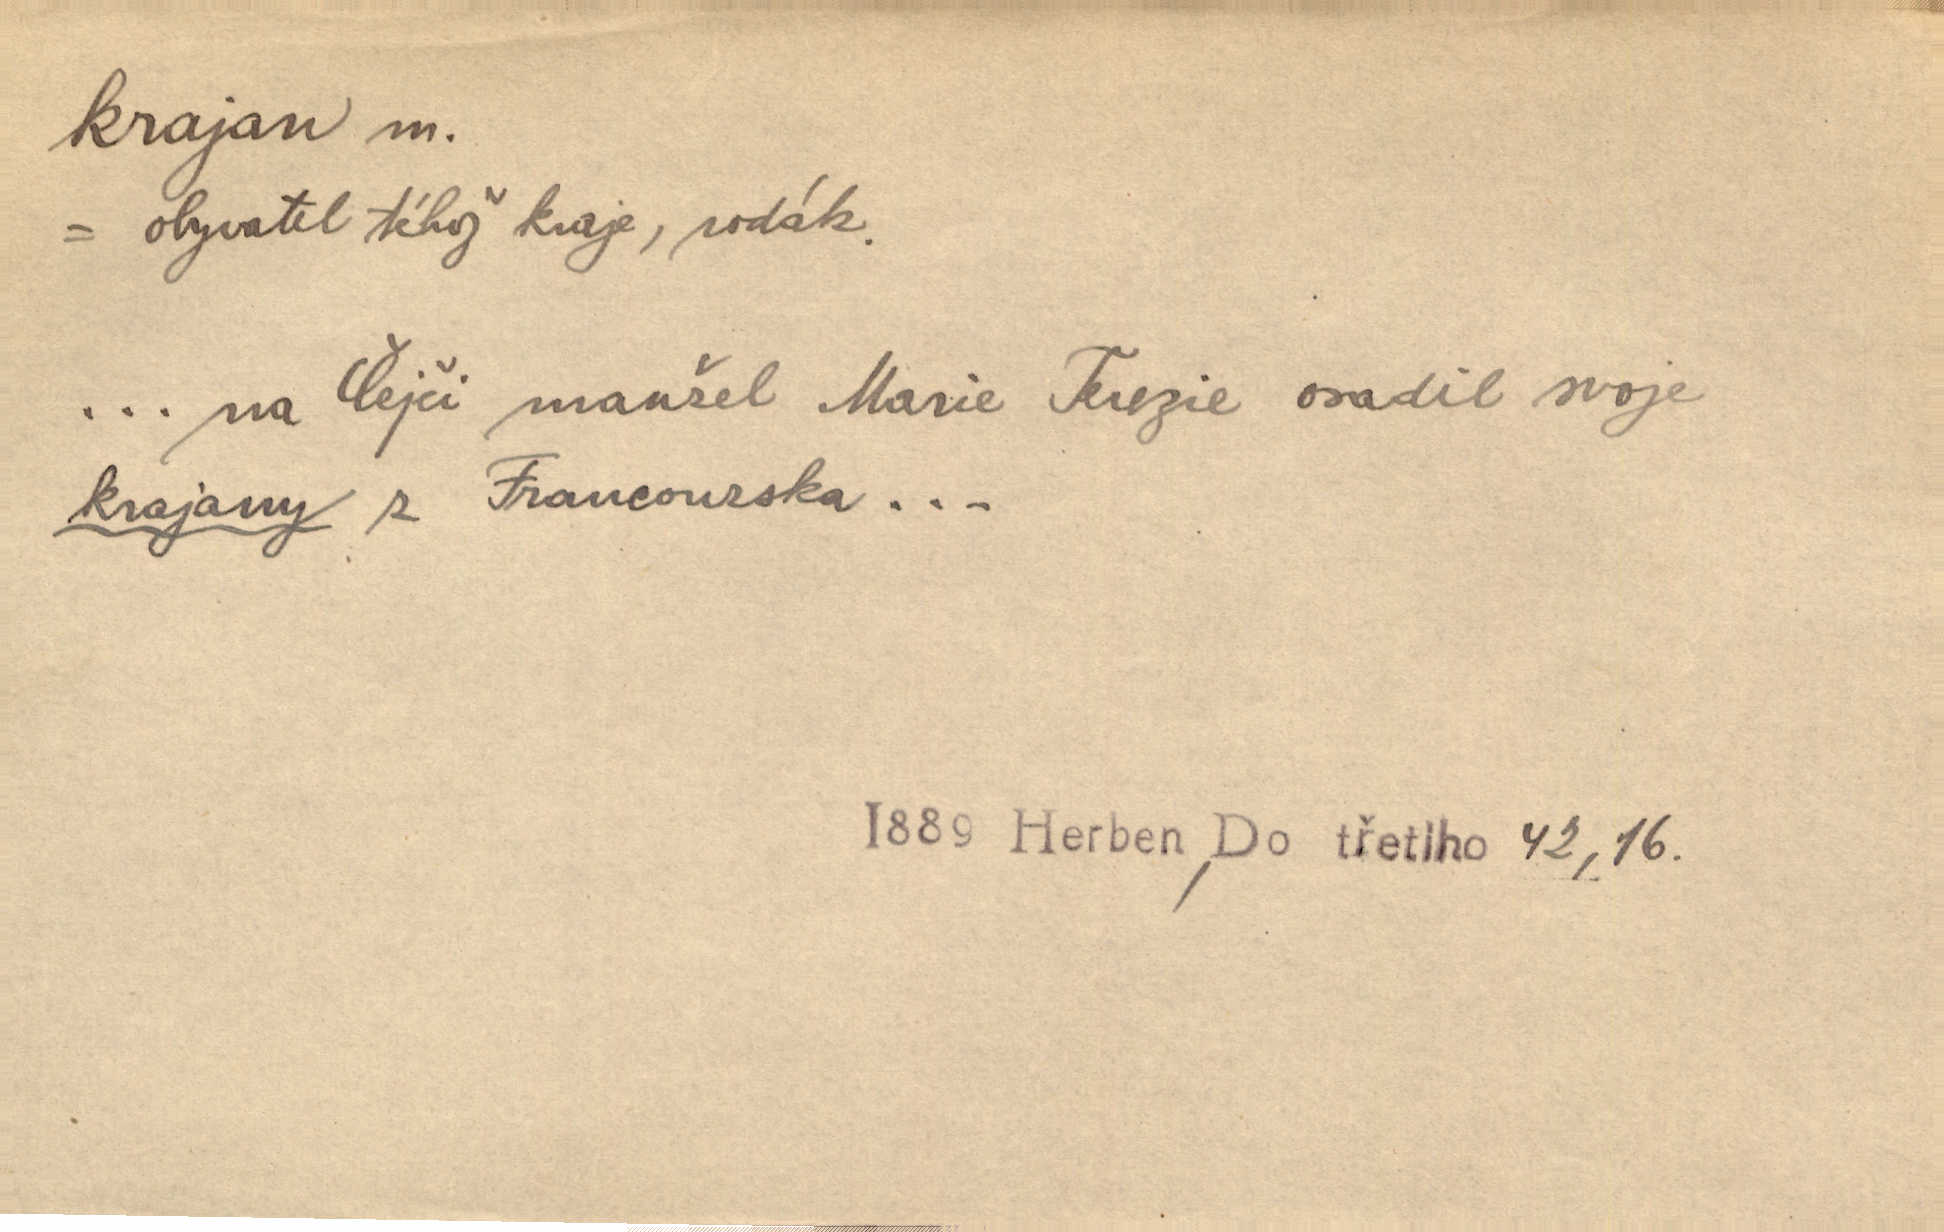 krajan m.
= obyvatel téhož kraje, rodák.
... na Čejči manžel Marie Terezie osadil svoje
krajany z Francouzska...
1889 Herben, Do třetího 42, 16.